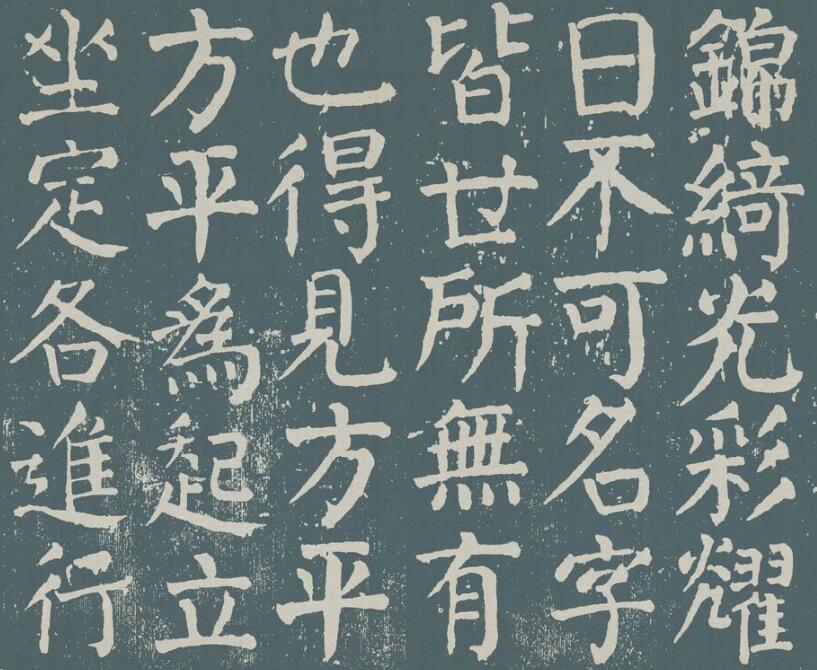 錦綺光彩耀
日不可名字
皆世所無有
也得見方平
方平為起立
坐定各進行